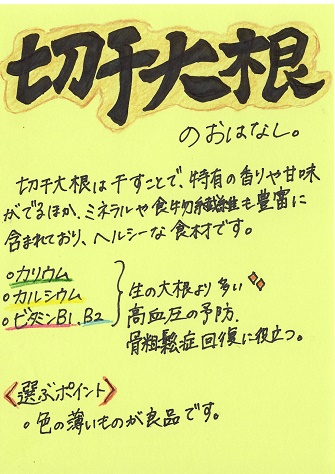 切干大根
のおはなし。
切干大根は干すことで、特有の香りや甘味
がでるほか、ミネラルや食物繊維も豊富に
含まれており、ヘルシーな食材です。
○カリウム
○カルシウム
○ビタミンB1、B2
生の大根より多い
高血圧の予防、
骨粗鬆症回復に役立つ。
〈選ぶポイント〉
○色の薄いものが良品です。